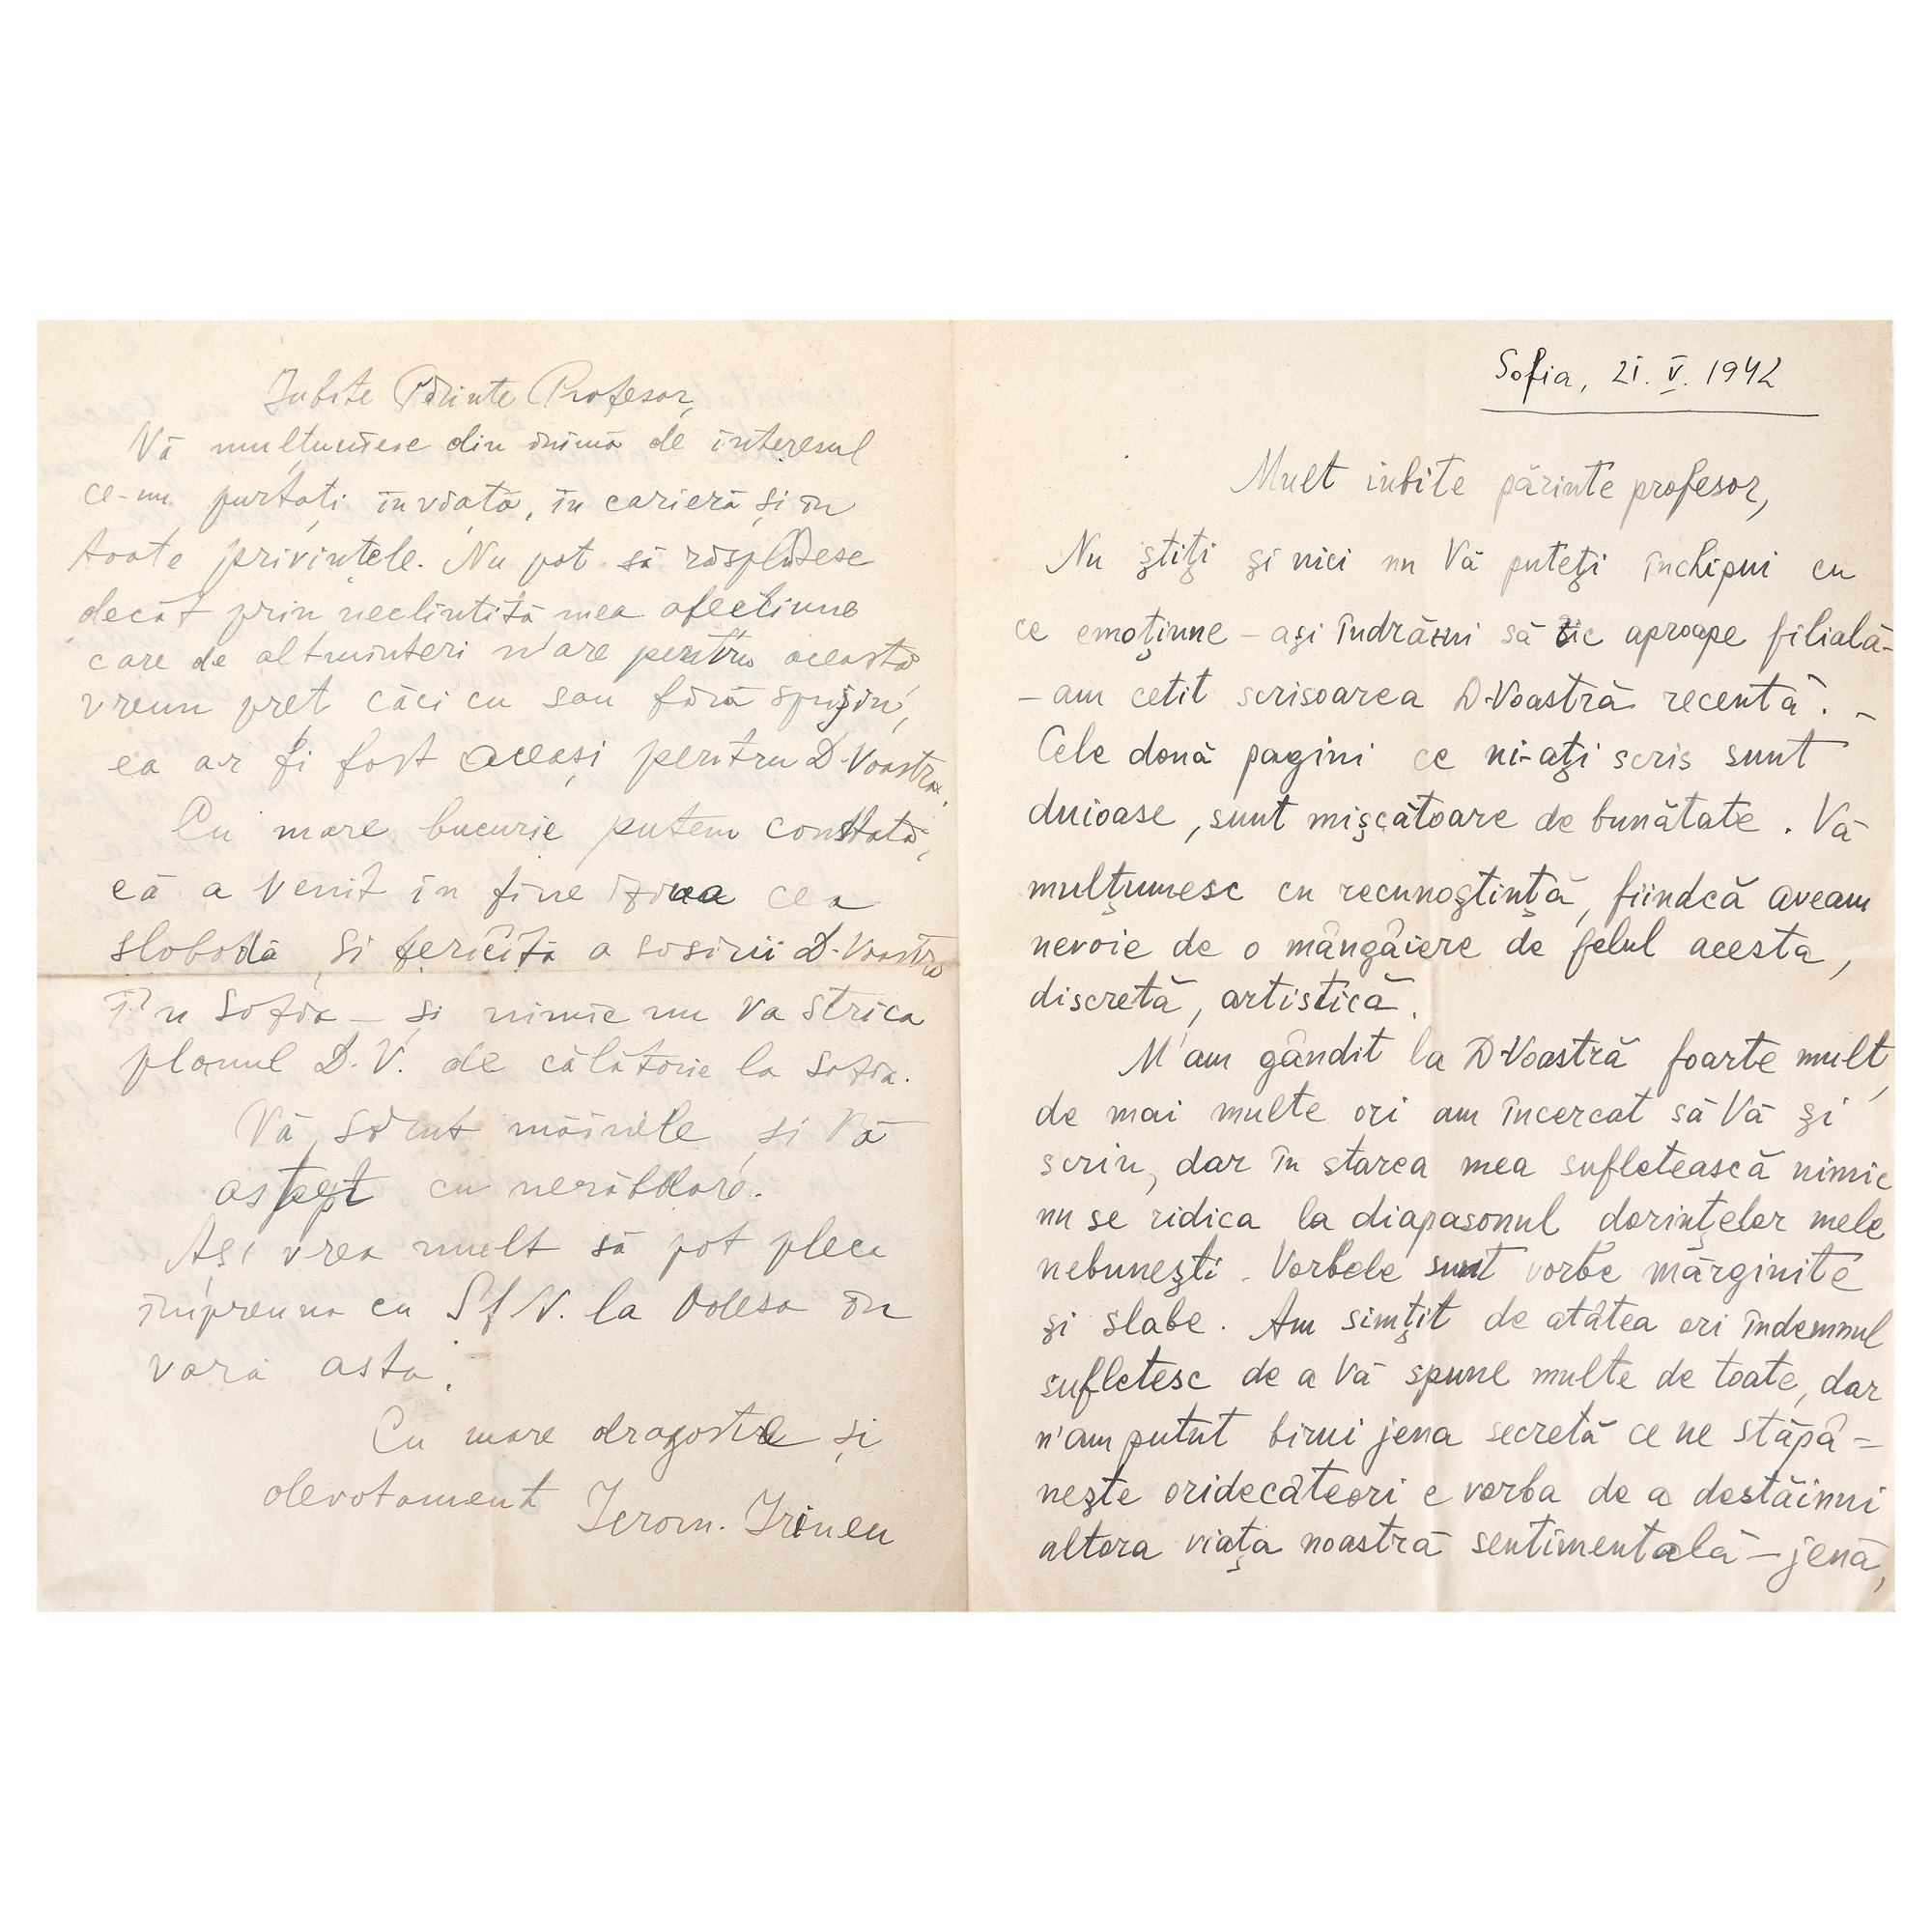 Sofia, 21. V. 1942
Mult iubite părinte profesor,
Nu ştiţi şi nici nu Vă puteţi închipui cu
ce emoţiune – aşi îndrăzni să zic aproape filială –
– am cetit scrisoarea D-Voastră recentă. –
Cele două pagini ce ni-aţi scris sunt
duioase, sunt mişcătoare de bunătate. Vă
mulţumesc cu recunoştinţă, fiindcă aveam
nevoie de o mângâiere de felul acesta,
discretă, artistică.
M'am gândit la D-Voastră foarte mult,
de mai multe ori am încercat să Vă şi
scriu, dar în starea mea sufletească nimic
nu se ridica la diapasonul dorinţelor mele
nebuneşti. Vorbele sunt vorbe mărginite
şi slabe. Am simţit de atâtea ori îndemnul
sufletesc de a Vă spune multe de toate, dar
n'am putut birui jena secretă ce ne stăpâ=
neşte oridecâteori e vorba de a destăinui
altora viaţa noastră sentimentală – jenă,
Iubite Părinte Profesor,
Vă mulţumesc din inimă de interesul
ce-mi purtaţi in viaţă, în carieră şi în
toate privinţele. Nu pot să răsplătesc
decât prin neclintită mea afecţiune
care de altminteri n'are pentru aceasta
vreun preţ căci cu sau fără sprijin,
ea ar fi fost aceaşi pentru D-Voastră.
Cu mare bucurie putem constata,
că a venit în fine ziua cea
slobodă şi fericită a sosirii D-Voastră
în Sofia – şi nimic nu va strica
planul D.V. de călătorie la Sofia.
Vă sărut mâinile şi Vă
aştept cu nerăbdare.
Aşi vrea mult să pot pleca
împreuna cu Sf. V. la Odesa în
vara asta.
Cu mare dragoste şi
devotament Ierom. Irineu